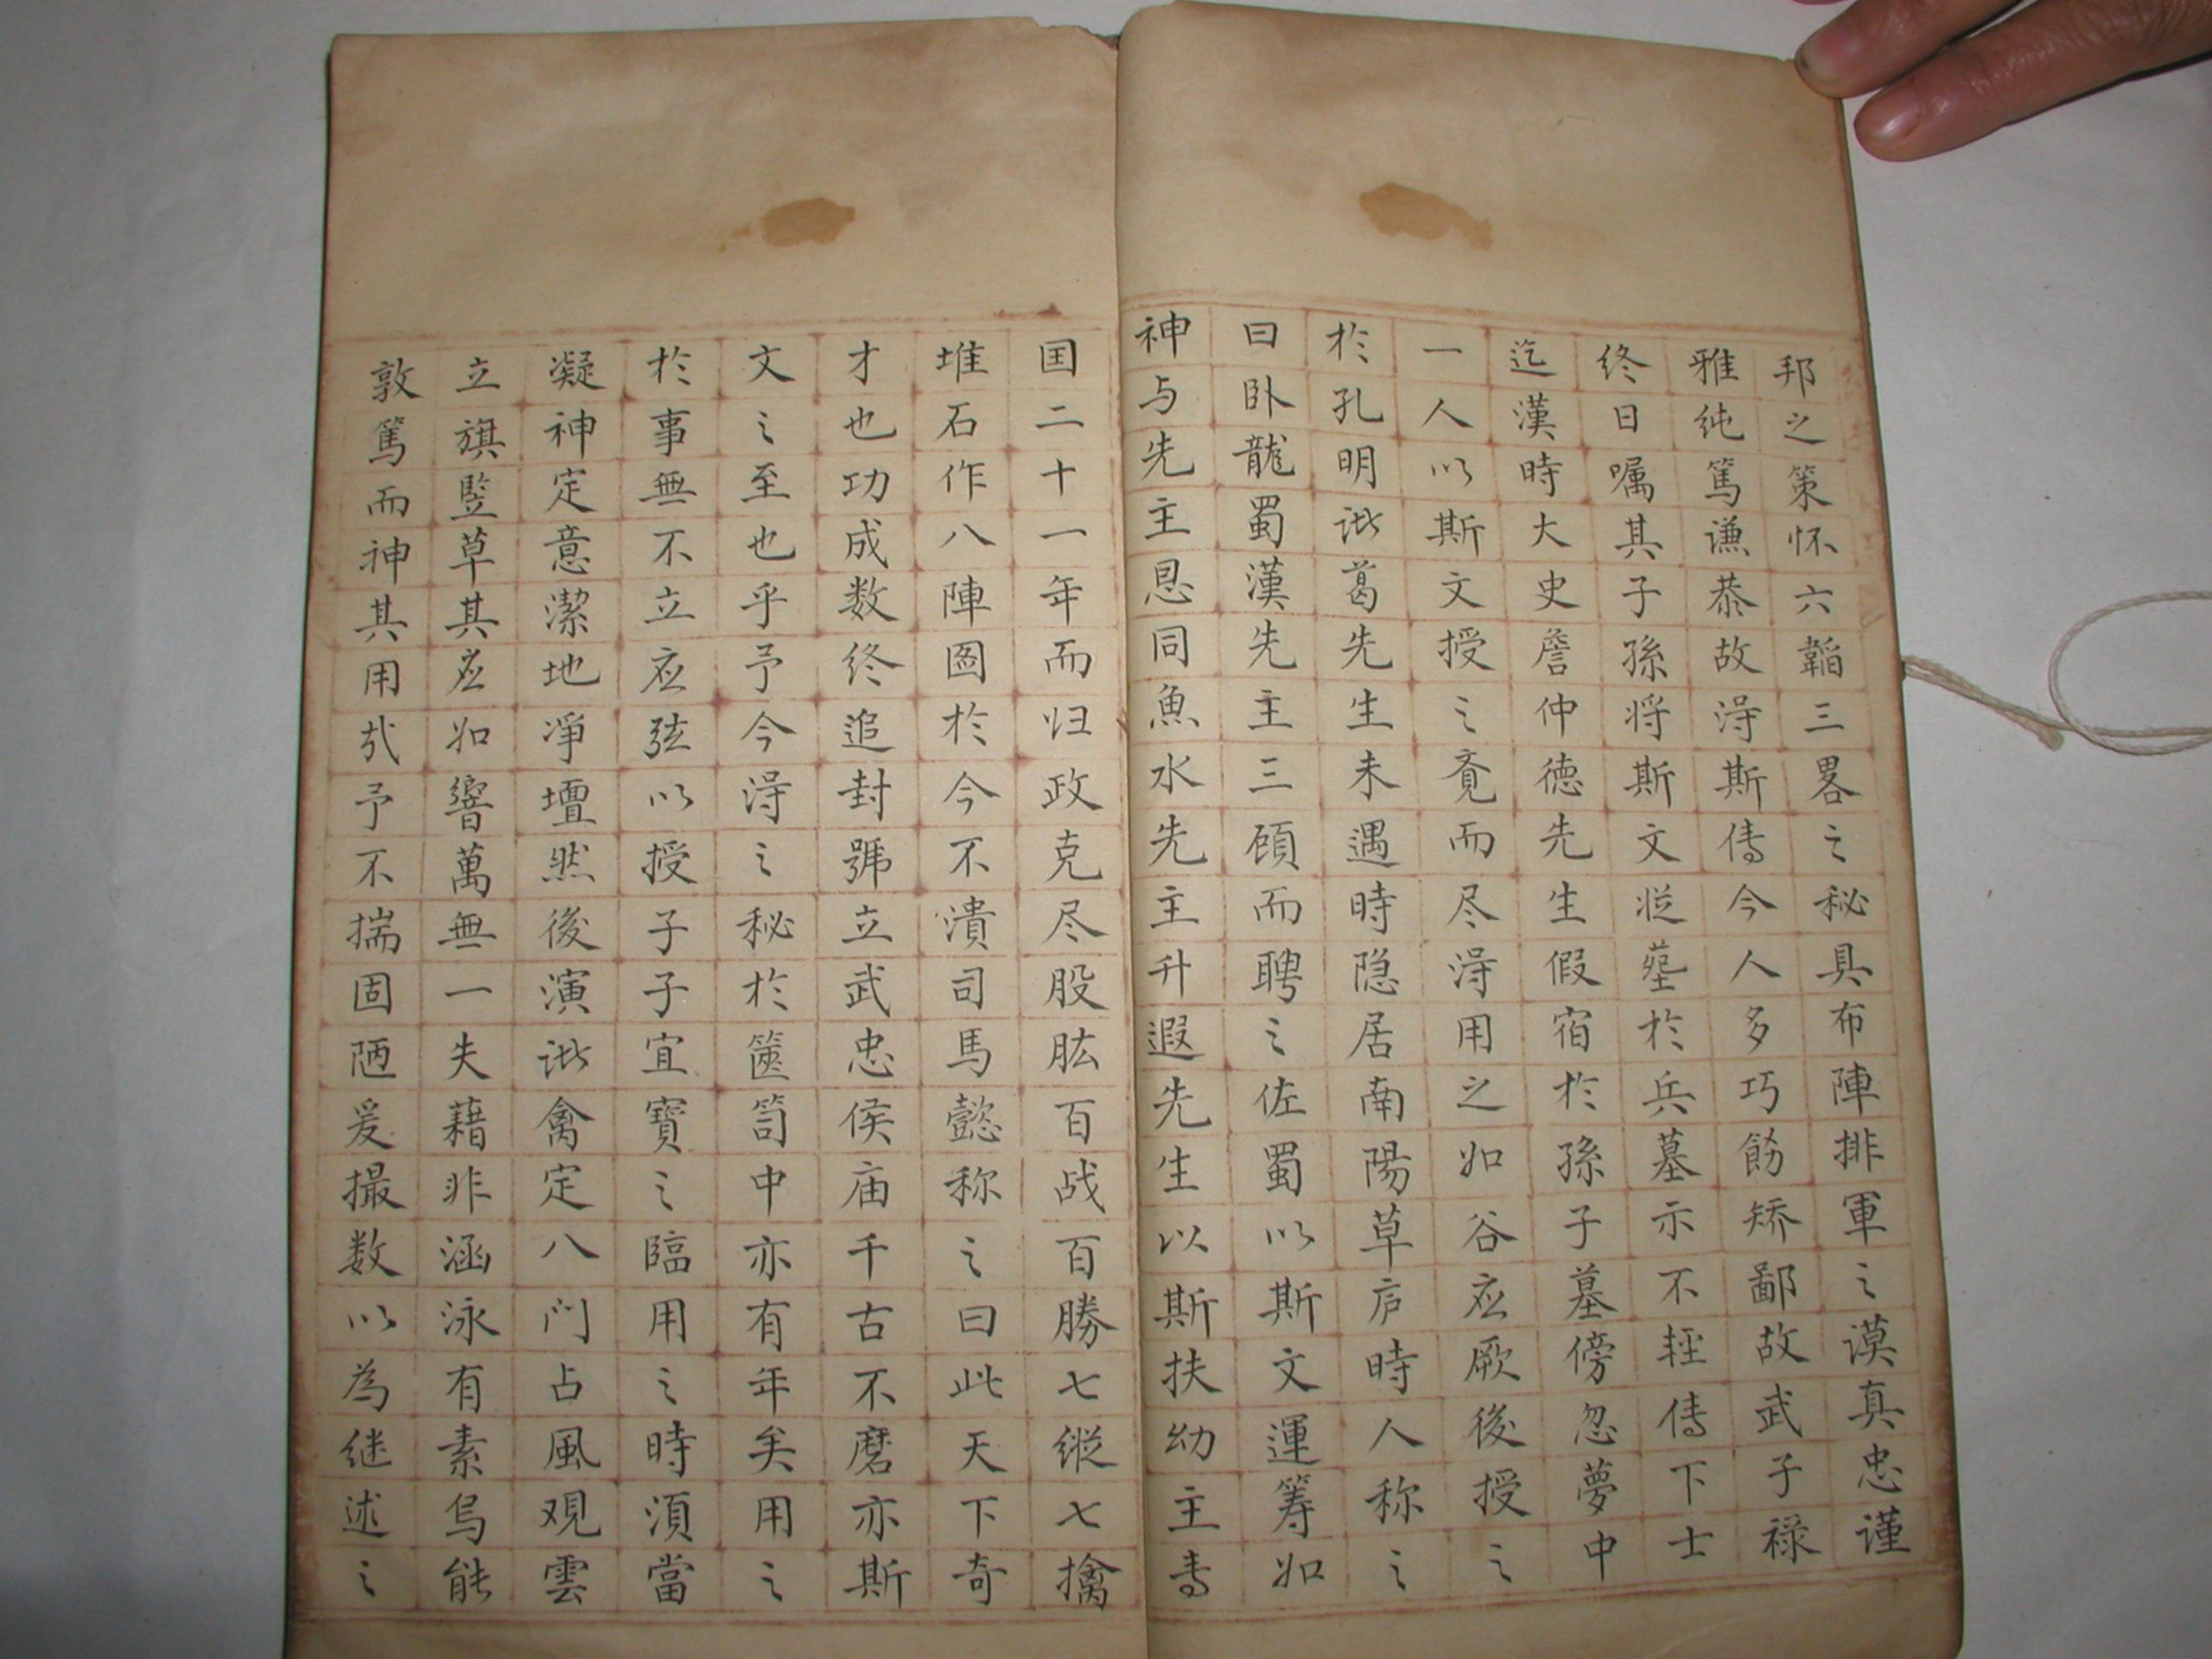 邦之策怀六韜三畧之秘具布陣排軍之謨真忠谨
雅纯篤谦恭故淂斯傳今人多巧飭矫鄙故武子禄
终日嘱其子孫将斯文从塟於兵墓示不輕傳下士
迄漢時大史詹仲德先生假宿於孫子墓傍忽夢中
一人以斯文授之竟而尽淂用之如谷应厥後授之
於孔明诸葛先生未遇時隐居南陽草庐時人称之
曰卧龍蜀漢先主三顧而聘之佐蜀以斯文運筹如
神与先主恩同魚水先主升遐先生以斯扶幼主寿
国二十一年而归政克尽股肱百战百勝七縱七擒
堆石作八陣图於今不潰司馬懿称之曰此天下奇
才也功成数终追封號立武忠侯庙千古不磨亦斯
文之至也乎予今淂之秘於箧笥中亦有年矣用之
於事無不立应弦以授子子宜寶之臨用之時須當
凝神定意潔地淨壇然後演诸禽定八门占風观雲
立旗竖草其应如響萬無一失藉非涵泳有素烏能
敦篤而神其用哉予不揣固陋爰撮数以為继述之